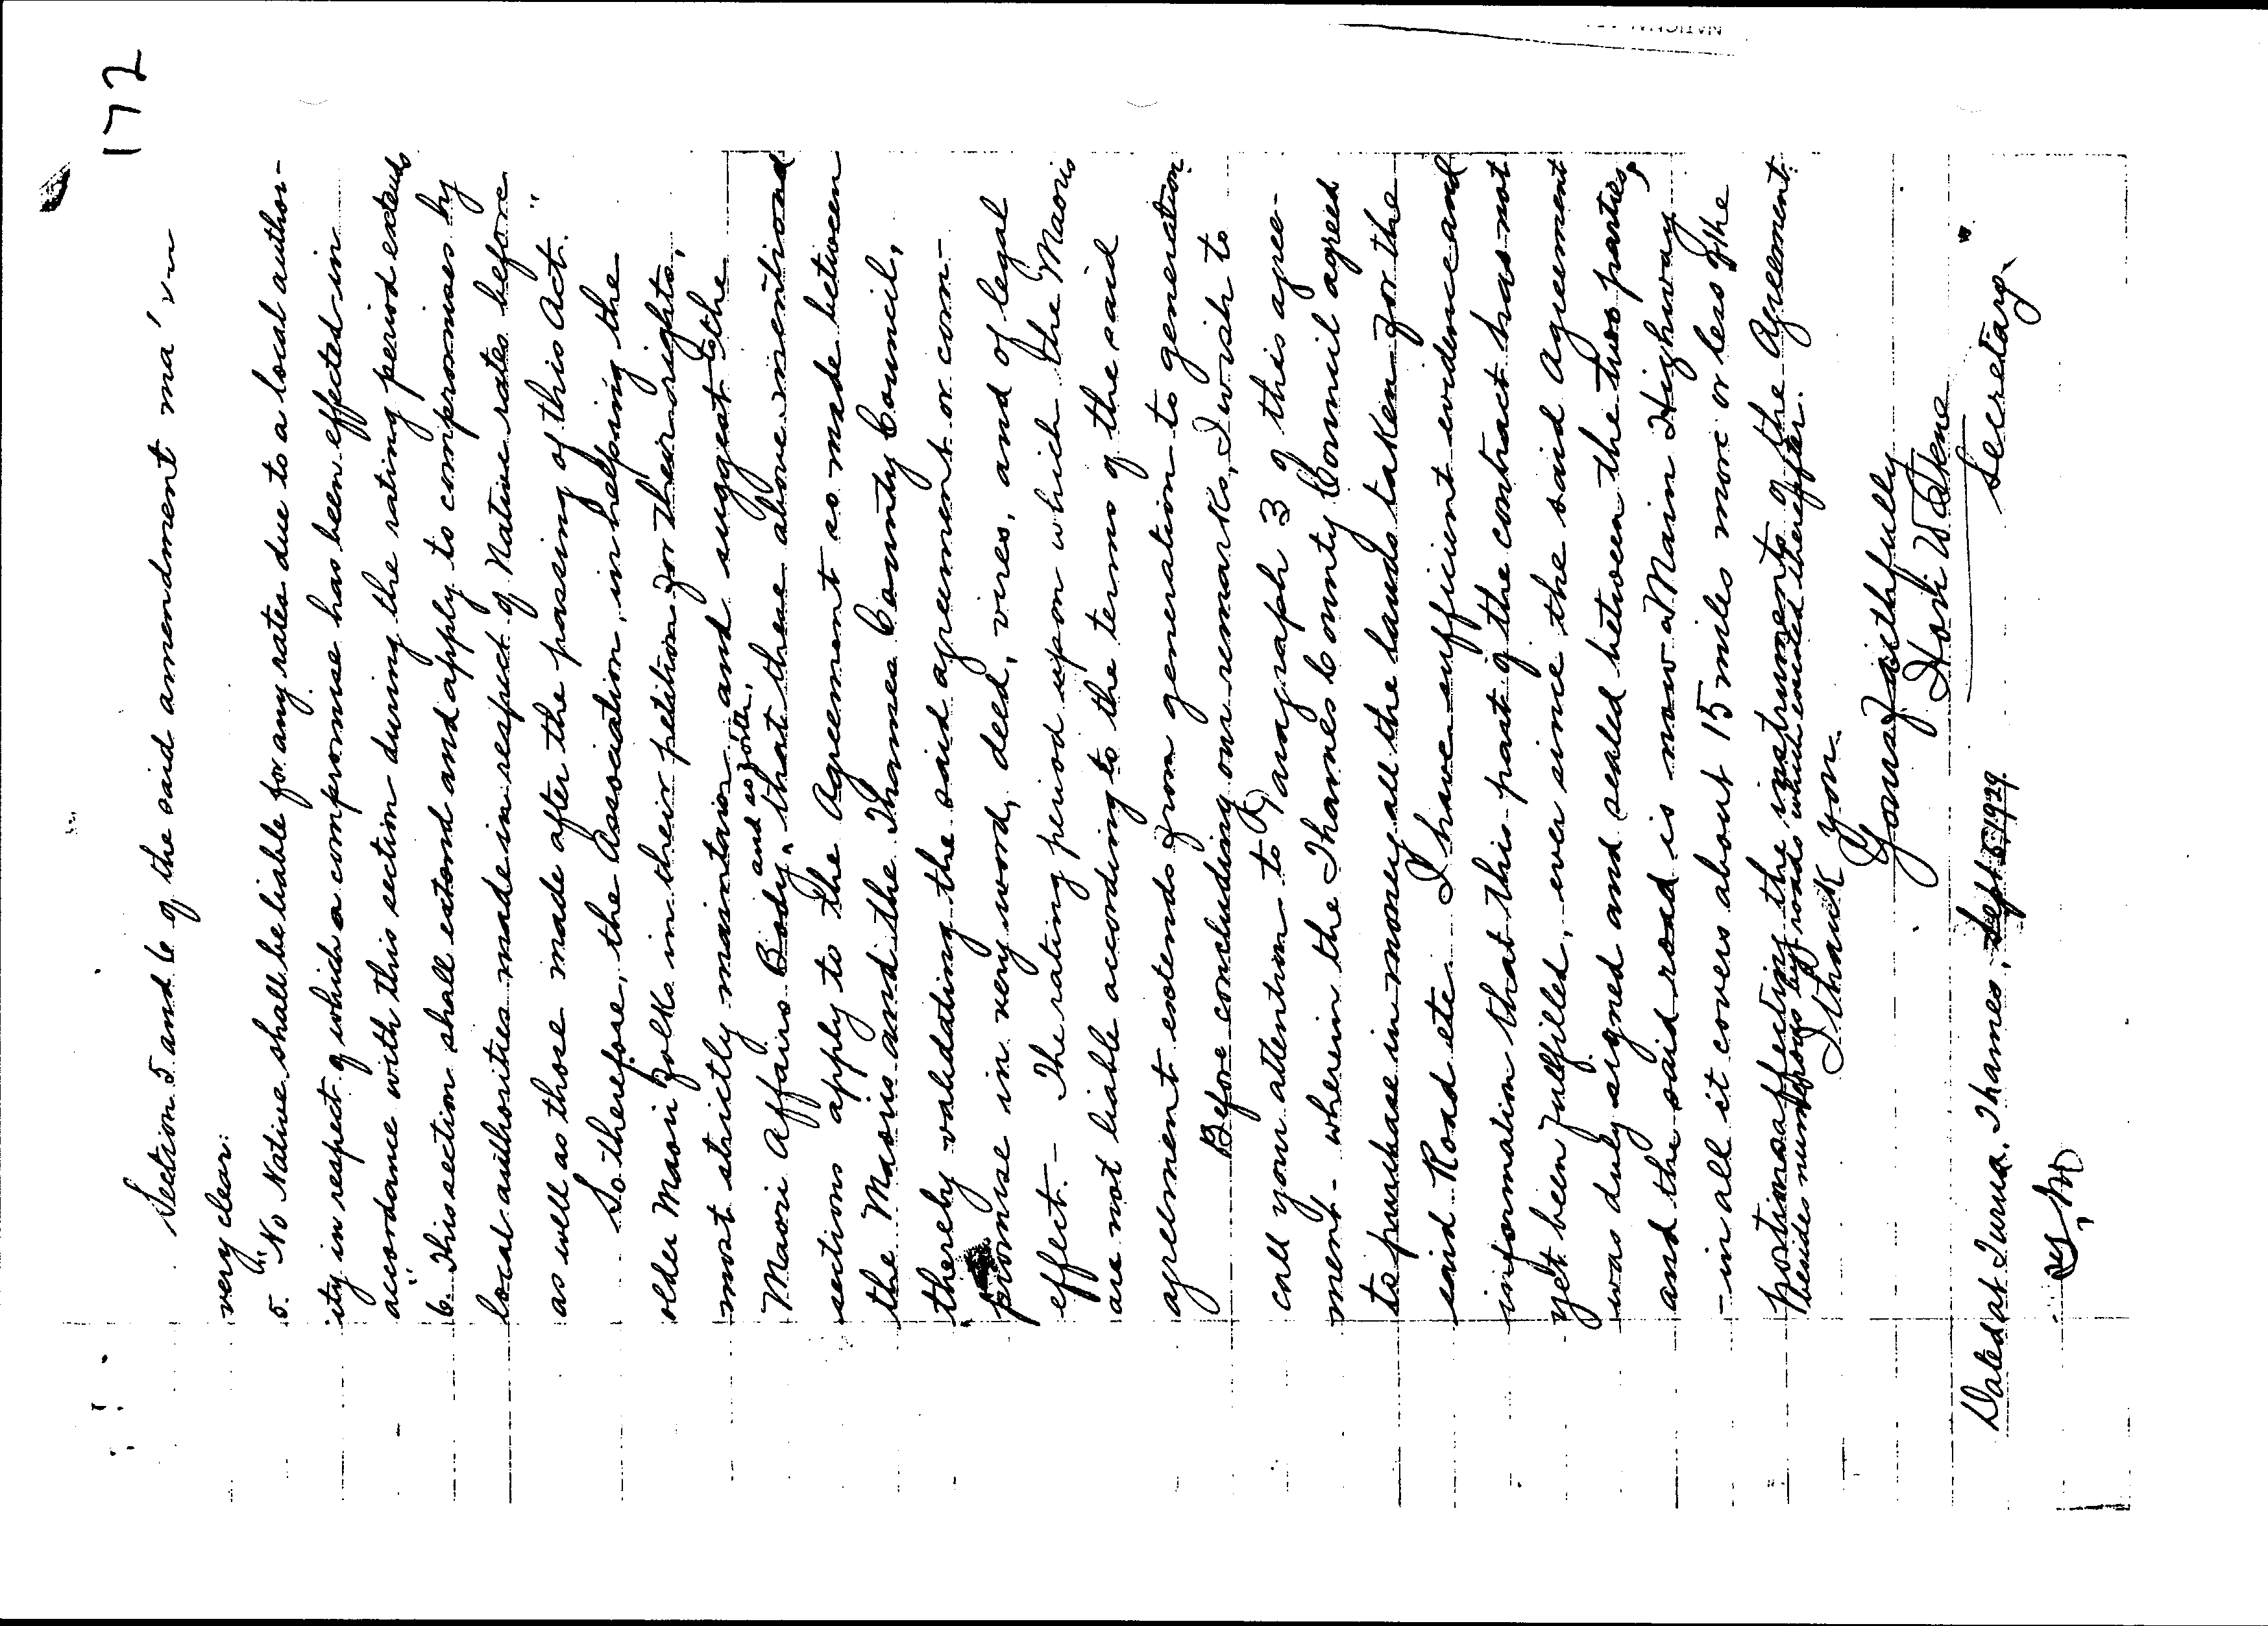 172
Section 5 and 6 of the said amendment
very clear:
5. "No Native shall be liable for any rates due to a local author-
ity in respect of which a compromise has been effected in
accordance with this section during the rating period extends
6. This section shall extend and apply to compromises by
local authorities made in respect of Native rates before
as well as those made after the passing of this Act."
So therefore, the Association, in helping the
older Maori folks in their petition for their rights,
most strictly maintain and suggest to the
Maori Affairs Body, and so forth, that these above mentioned
sections apply to the Agreement so made between
the Maoris and the Thames County Council,
thereby validating the said agreement or com-
promise in very word, deed, vires, and of legal
effect. - The rating period upon which the Maoris
are not liable according to the terms of the said
agreement extends from generation to generation
Before concluding our remarks, I wish to
call your attention to Paragraph 3 of this agree-
ment - wherein the Thames County Council agreed
to purchase in money all the lands taken for the
said Road etc - I have sufficient evidence and
information that this part of the contract has not
yet been fullfilled, ever since the said Agreement
was duly signed and sealed between the two parties,
and the said road is now a Main Highway
- in all it covers about 15 miles more or less of the
portions affecting the instruments of the Agreement.
besides numerous bye roads which ended thereafter.
I thank you.
Yours faithfully
Hori Watene
Secretary
Dated at Turua. Thames, Sept 5/1929